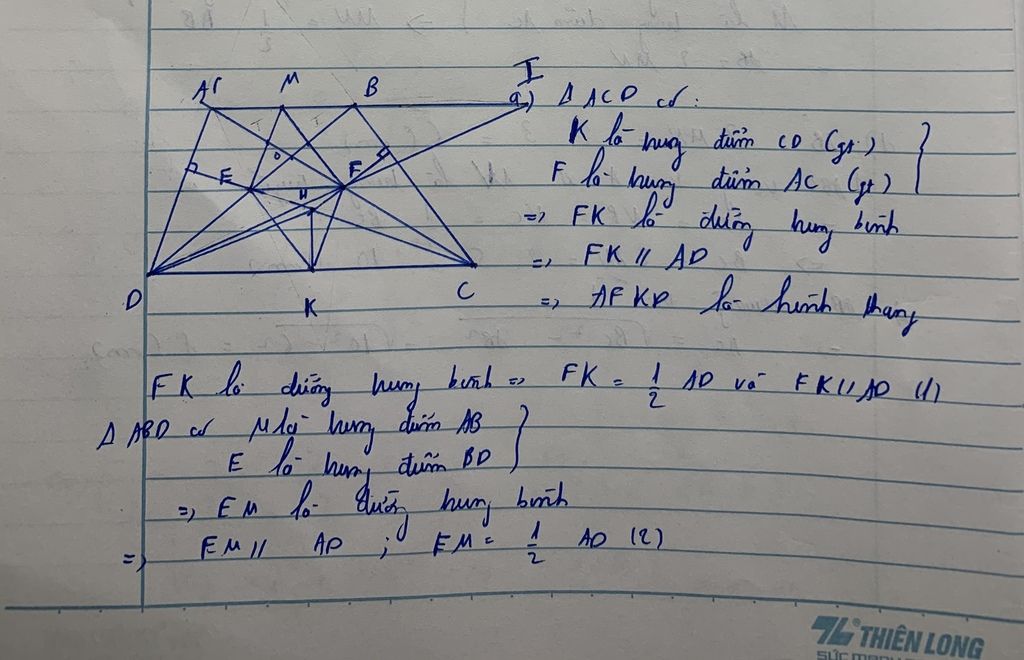 A M B I
E O F
H
D K C
a) Δ ACD có:
K là trung điểm CD (gt)
F là trung điểm AC (gt)
=> FK là đường trung bình
=> FK // AD
=> AFKD là hình thang
FK là đường trung bình => FK = 1/2 AD và FK // AD (1)
Δ ABD có M là trung điểm AB
E là trung điểm BD
=> EM là đường trung bình
=> EM // AD ; EM = 1/2 AD (2)
THIÊN LONG